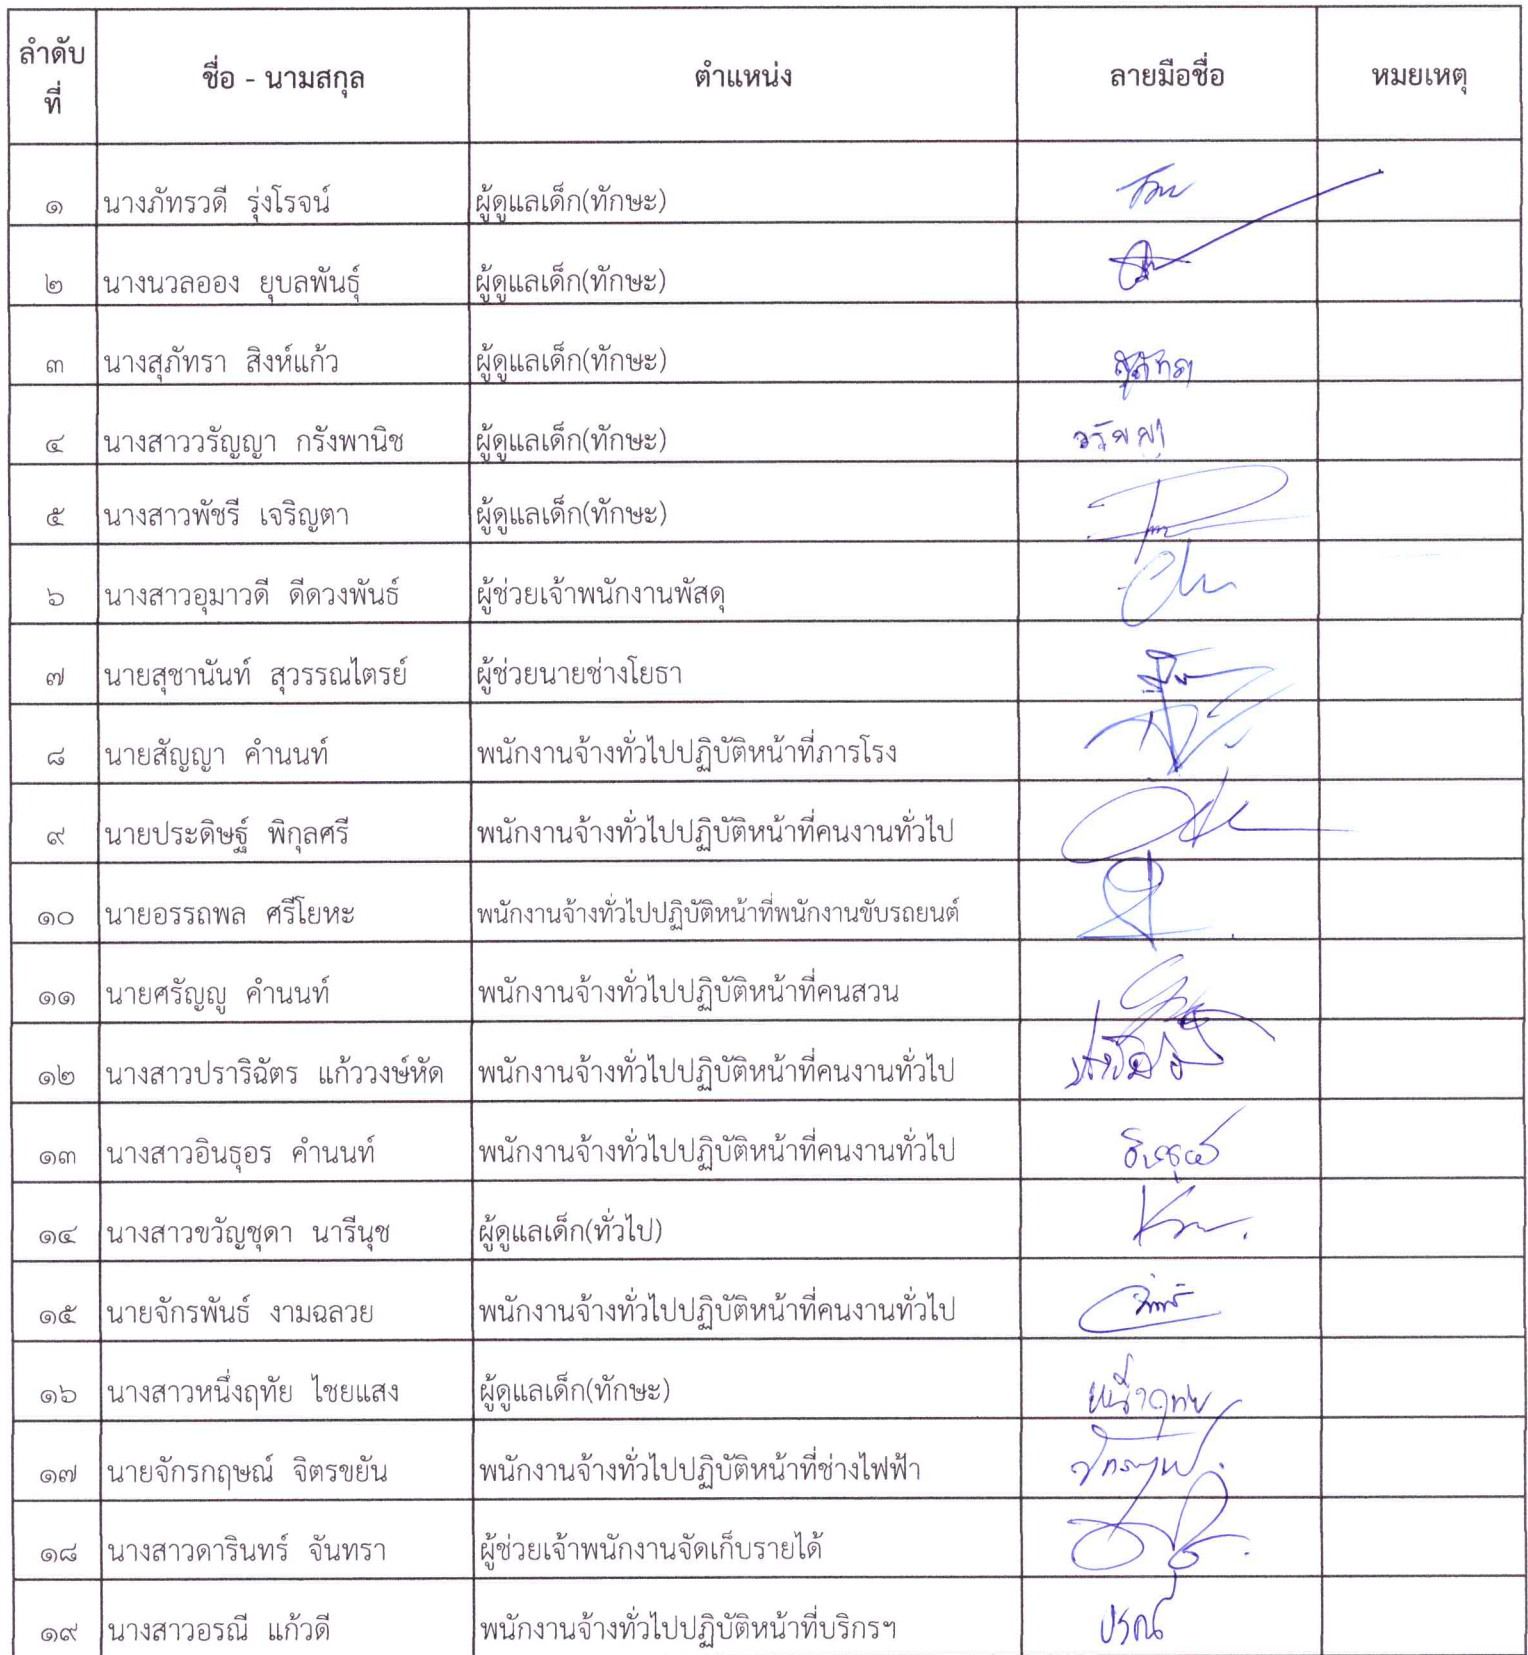 ลำดับที่ ชื่อ - นามสกุล ตำแหน่ง ลายมือชื่อ หมยเหตุ
๑ นางภัทรวดี รุ่งโรจน์ ผู้ดูแลเด็ก(ทักษะ)
๒ นางนวลออง ยุบลพันธุ์ ผู้ดูแลเด็ก(ทักษะ)
๓ นางสุภัทรา สิงห์แก้ว ผู้ดูแลเด็ก(ทักษะ) สุภัทรา
๔ นางสาววรัญญา กรังพานิช ผู้ดูแลเด็ก(ทักษะ) วรัญญา
๕ นางสาวพัชรี เจริญตา ผู้ดูแลเด็ก(ทักษะ)
๖ นางสาวอุมาวดี ดีดวงพันธ์ ผู้ช่วยเจ้าพนักงานพัสดุ
๗ นายสุชานันท์ สุวรรณไตรย์ ผู้ช่วยนายช่างโยธา
๘ นายสัญญา คำนนท์ พนักงานจ้างทั่วไปปฏิบัติหน้าที่ภารโรง
๙ นายประดิษฐ์ พิกุลศรี พนักงานจ้างทั่วไปปฏิบัติหน้าที่คนงานทั่วไป
๑๐ นายอรรถพล ศรีโยหะ พนักงานจ้างทั่วไปปฏิบัติหน้าที่พนักงานขับรถยนต์
๑๑ นายศรัญญู คำนนท์ พนักงานจ้างทั่วไปปฏิบัติหน้าที่คนสวน
๑๒ นางสาวปราริฉัตร แก้ววงษ์หัด พนักงานจ้างทั่วไปปฏิบัติหน้าที่คนงานทั่วไป
๑๓ นางสาวอินธุอร คำนนท์ พนักงานจ้างทั่วไปปฏิบัติหน้าที่คนงานทั่วไป อินธุอร
๑๔ นางสาวขวัญชุดา นารีนุช ผู้ดูแลเด็ก(ทั่วไป)
๑๕ นายจักรพันธ์ งามฉลวย พนักงานจ้างทั่วไปปฏิบัติหน้าที่คนงานทั่วไป
๑๖ นางสาวหนึ่งฤทัย ไชยแสง ผู้ดูแลเด็ก(ทักษะ) หนึ่งฤทัย
๑๗ นายจักรกฤษณ์ จิตรขยัน พนักงานจ้างทั่วไปปฏิบัติหน้าที่ช่างไฟฟ้า
๑๘ นางสาวดารินทร์ จันทรา ผู้ช่วยเจ้าพนักงานจัดเก็บรายได้
๑๙ นางสาวอรณี แก้วดี พนักงานจ้างทั่วไปปฏิบัติหน้าที่บริกรฯ